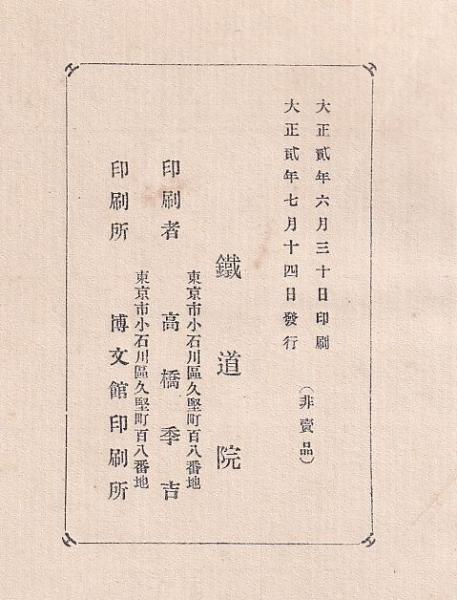 大正貳年六月三十日印刷
大正貳年七月十四日發行
(非賣品)
鐵道院
東京市小石川區久堅町百八番地
印刷者 高橋季吉
東京市小石川區久堅町百八番地
印刷所 博文館印刷所